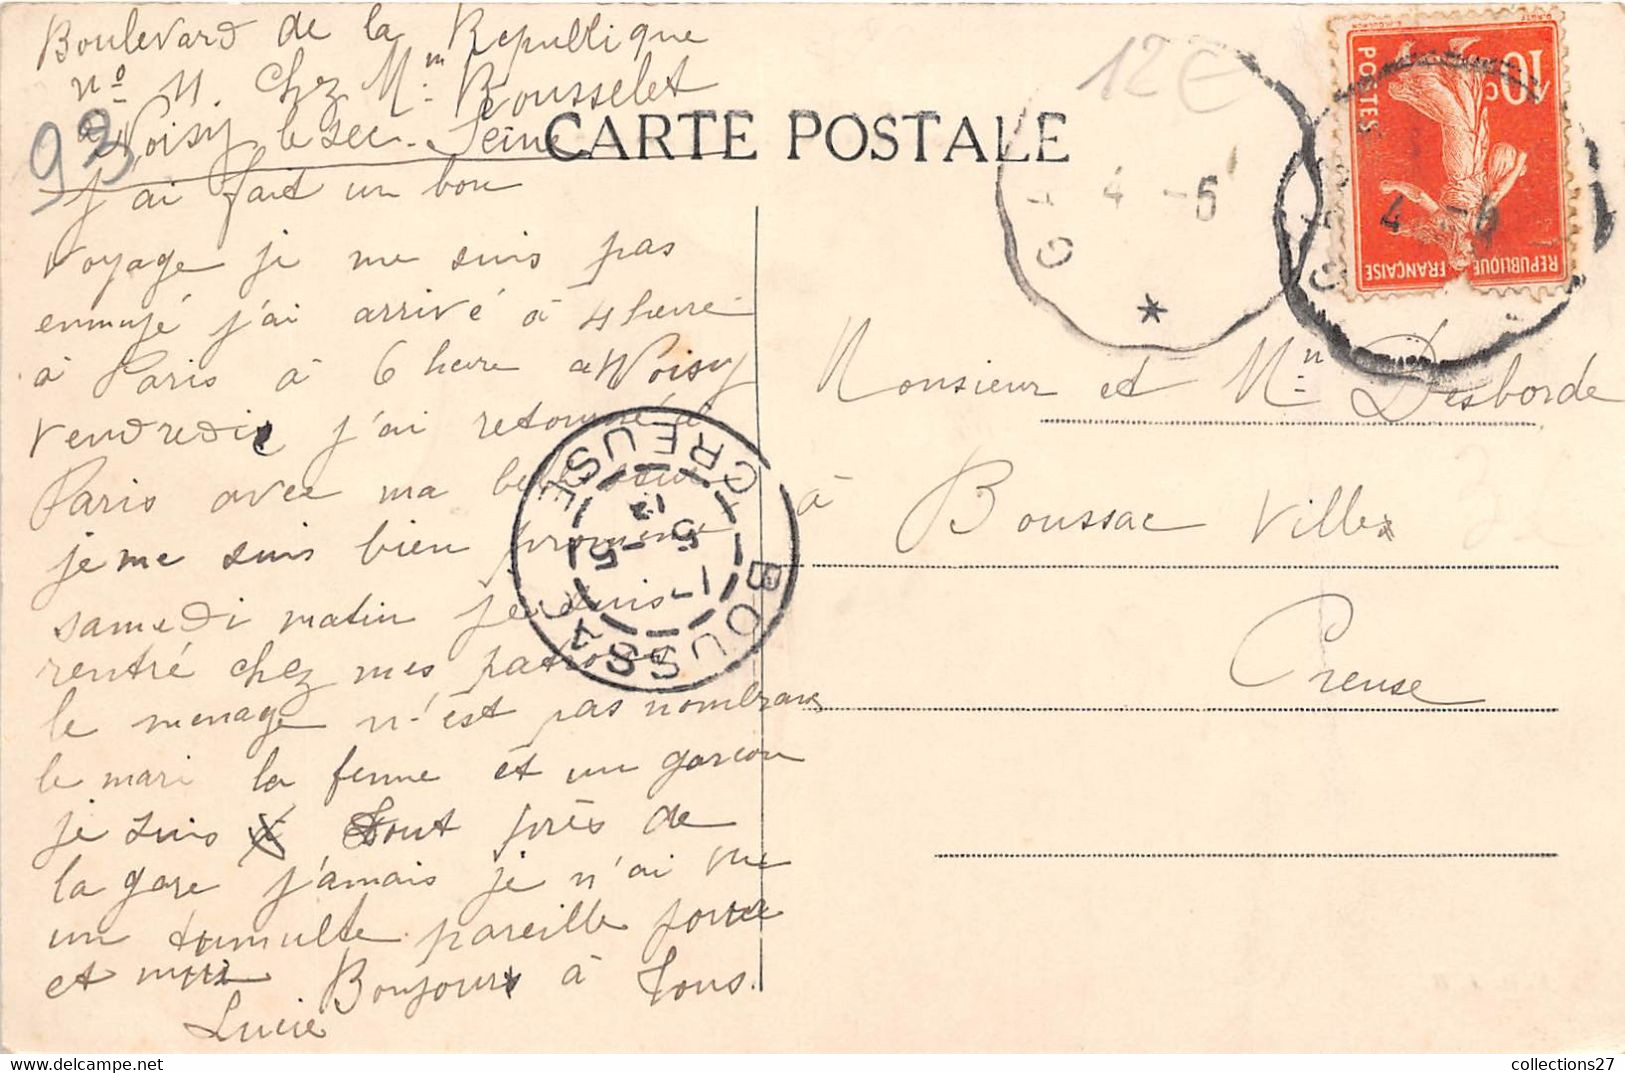 Boulevard de la Republique
nº 11 chez Mm Rousselet
a Noisy le sec. Seine
CARTE POSTALE
93
12€
j'ai fait un bon
voyage je me suis pas
ennuyé j'ai arrivé à 4 heure
à Paris à 6 heure a Noisy
vendredi j'ai retourné à
Paris avec ma belle soeur
je me suis bien promené
samedi matin je suis
rentré chez mes patrons
le menage n'est pas nombraux
le mari la femme et un garcon
je suis tout près de
la gare j'amais je n'ai vue
un tumulte pareille jour
et nuit Bonjour à tous.
Lucie
10c
POSTES
REPUBLIQUE FRANÇAISE
GA
4 -5
GA
4 -5
BOUSSAC
CREUSE
5 -5
12
Monsieur et Mm Desborde
à Boussac Ville
Creuse
collections27